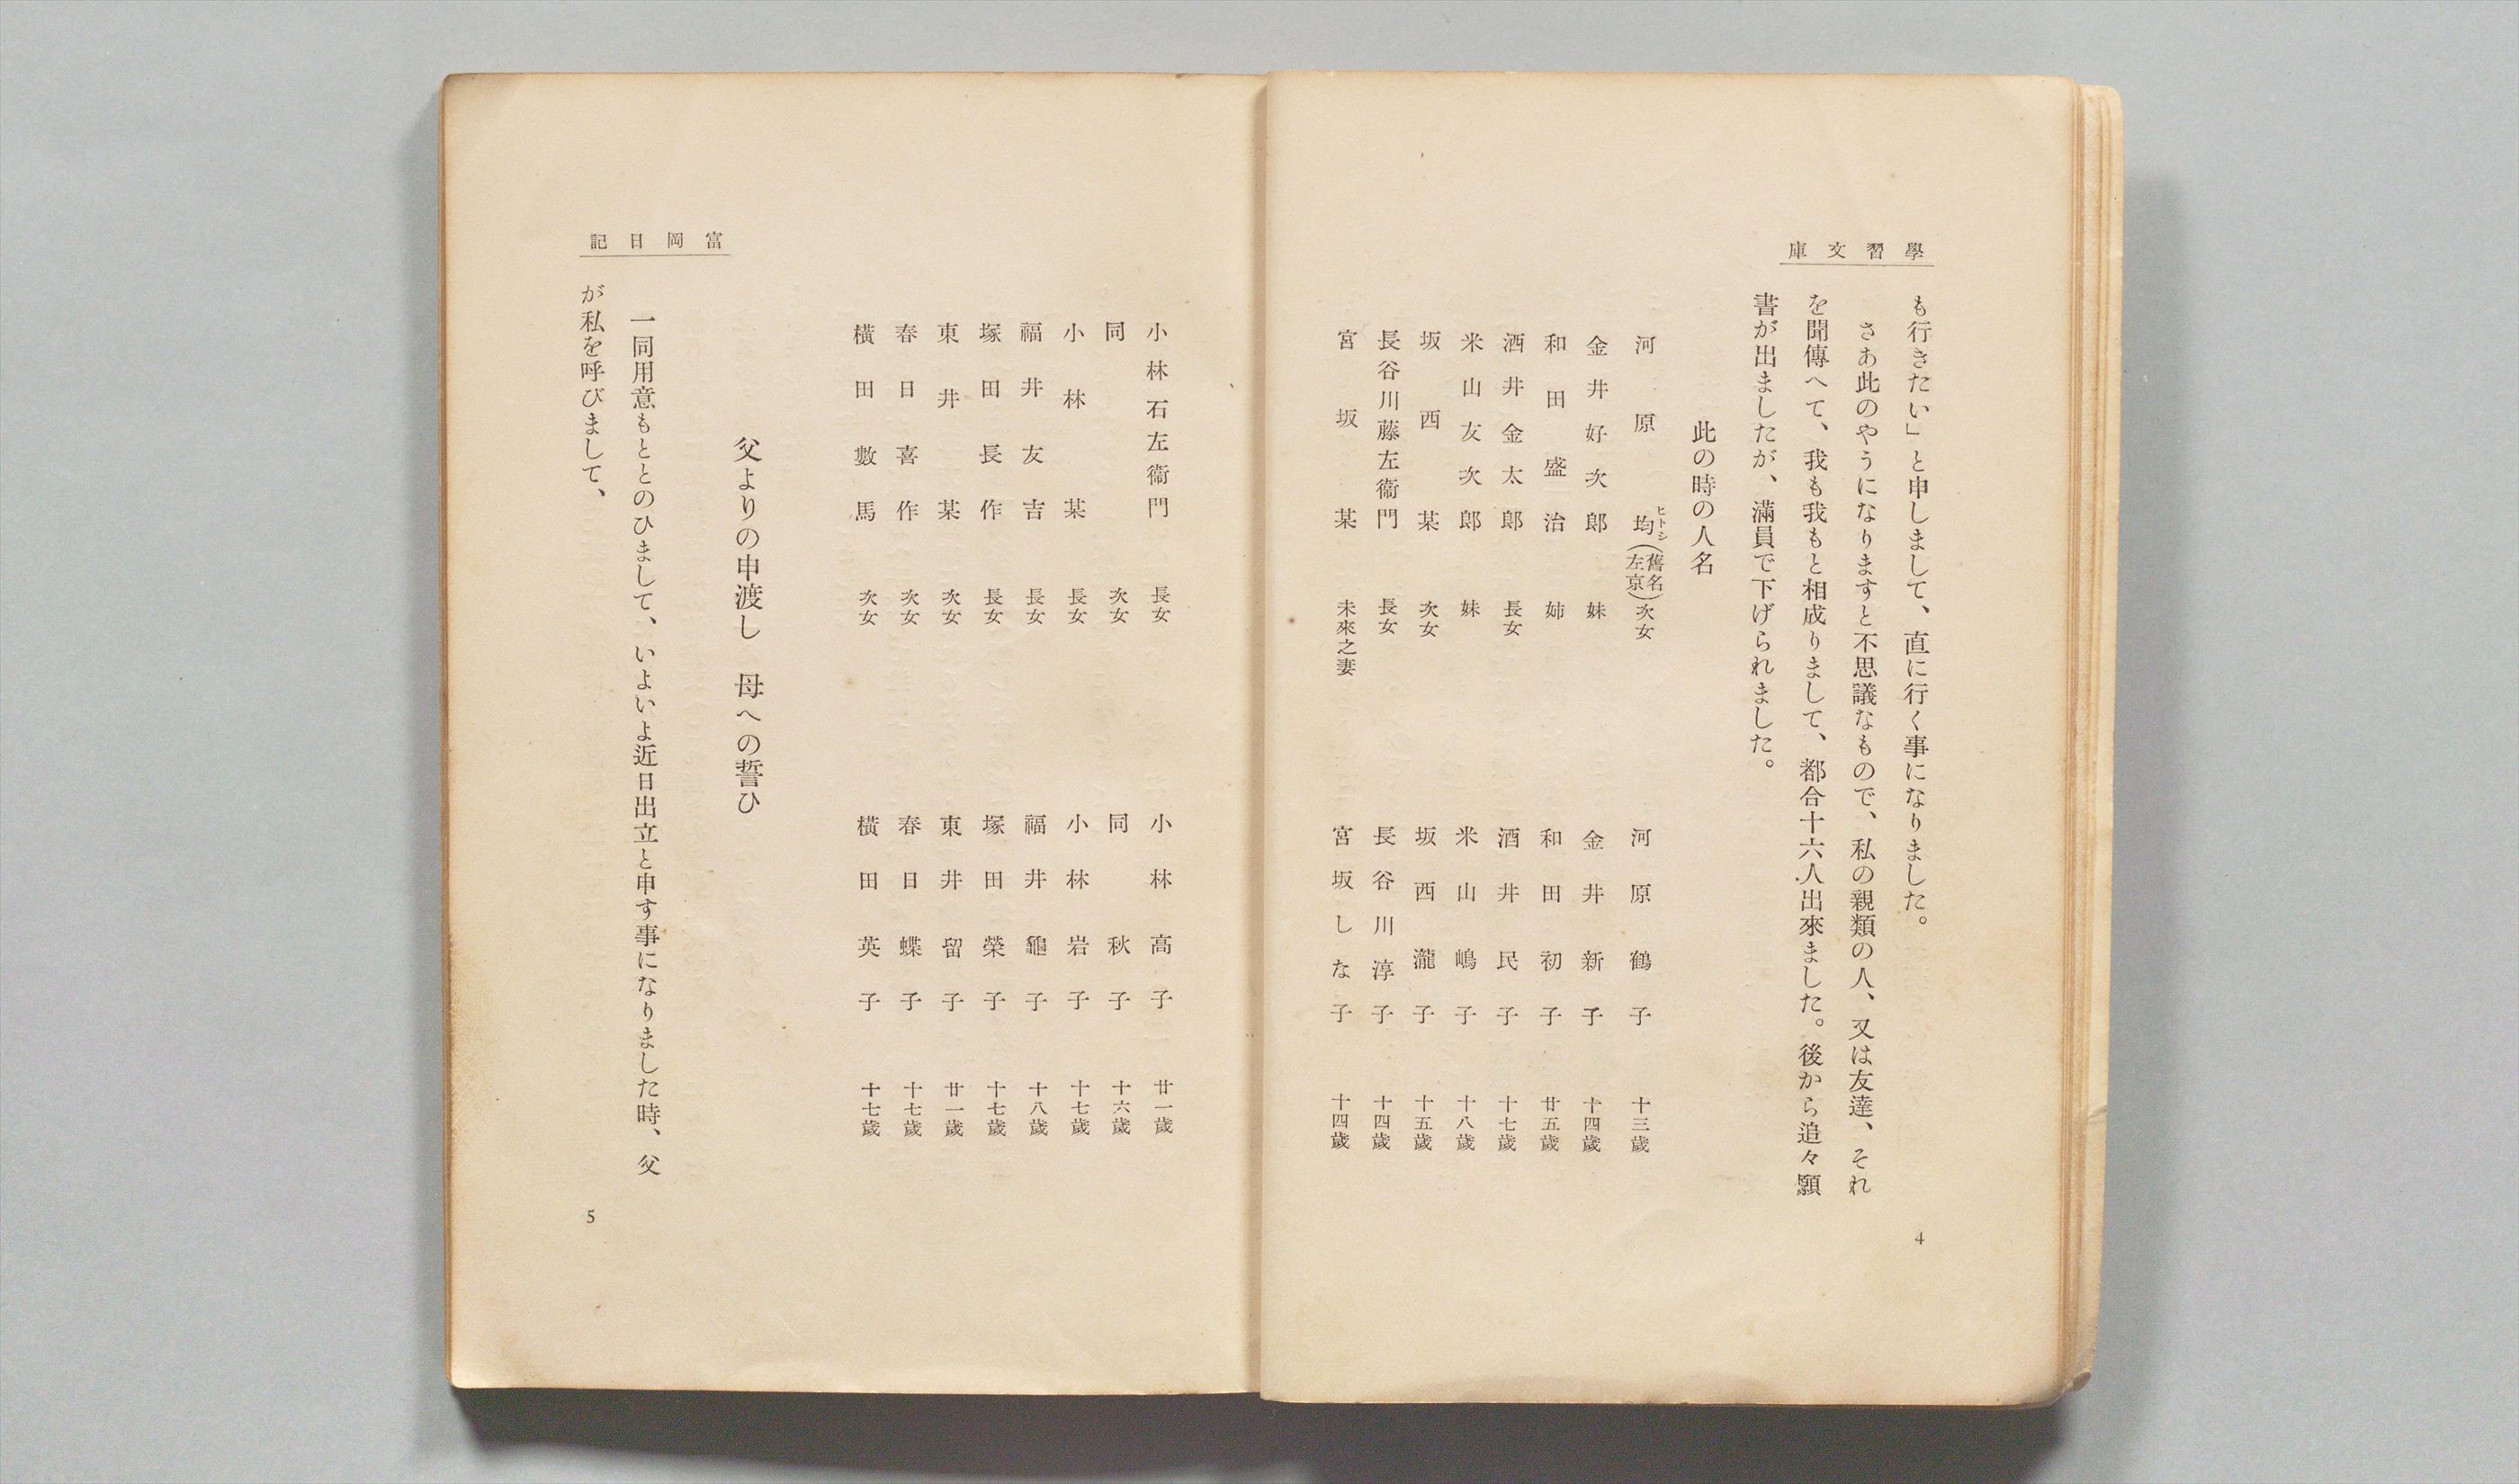 學習文庫
も行きたい」と申しまして、直に行く事になりました。
さあ此のやうになりますと不思議なもので、私の親類の人、又は友達、それ
を聞傳へて、我も我もと相成りまして、都合十六人出來ました。後から追々願
書が出ましたが、滿員で下げられました。
此の時の人名
河原均ヒトシ(舊名左京)次女 河原鶴子 十三歲
金井好次郎 妹 金井新子 十四歲
和田盛治 姉 和田初子 廿五歲
酒井金太郎 長女 酒井民子 十七歲
米山友次郎 妹 米山嶋子 十八歲
坂西某 次女 坂西瀧子 十五歲
長谷川藤左衞門 長女 長谷川淳子 十四歲
宮坂某 未來之妻 宮坂しな子 十四歲
4
富岡日記
小林石左衞門 長女 小林高子 廿一歲
同 次女 同秋子 十六歲
小林某 長女 小林岩子 十七歲
福井友吉 長女 福井龜子 十八歲
塚田長作 長女 塚田榮子 十七歲
東井某 次女 東井留子 廿一歲
春日喜作 次女 春日蝶子 十七歲
橫田數馬 次女 橫田英子 十七歲
父よりの申渡し 母への誓ひ
一同用意もととのひまして、いよいよ近日出立と申す事になりました時、父
が私を呼びまして、
5